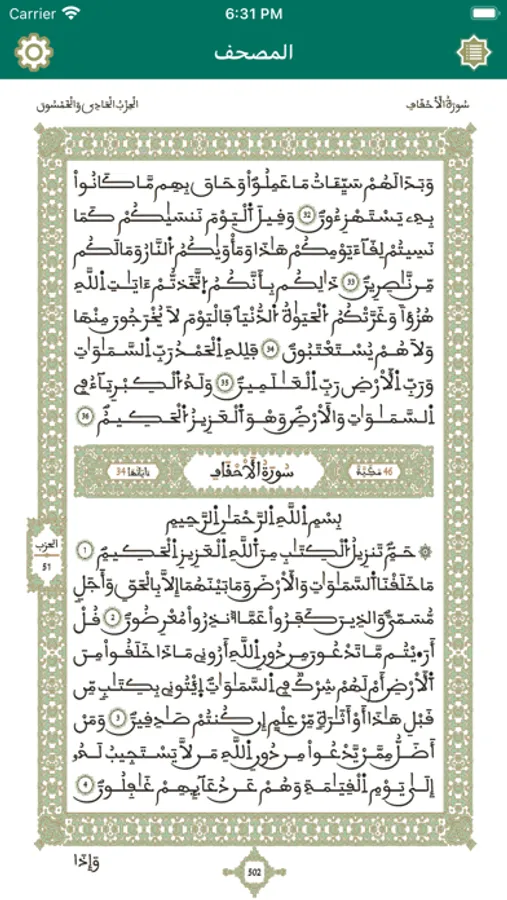 Carrier 6:31 PM
المصحف
سُورَةُ الْأَحْقَافِ الحِزْبُ الْحَادِي وَالْخَمْسُونَ
وَبَدَا لَهُمْ سَيِّـَٔاتُ مَا عَمِلُواْ وَحَاقَ بِهِم مَّا كَانُواْ
بِهِۦ يَسْتَهْزِءُونَ 32 وَقِيلَ اَ۬لْيَوْمَ نَنس۪يٰكُمْ كَمَا
نَسِيتُمْ لِقَآءَ يَوْمِكُمْ هَٰذَا وَمَأْو۪يٰكُمُ اُ۬لنَّارُ وَمَا لَكُم
مِّن نَّٰصِرِينَ 33 ذَٰلِكُم بِأَنَّكُمُ اُ۪تَّخَذتُّمُۥٓ ءَايَٰتِ اِ۬للَّهِ
هُزُؤاٗ وَغَرَّتْكُمُ اُ۬لْحَيَوٰةُ اُ۬لدُّنْي۪ا فَالْيَوْمَ لَا يُخْرَجُونَ مِنْهَا
وَلَا هُمْ يُسْتَعْتَبُونَ 34 فَلِلهِ اِ۬لْحَمْدُ رَبِّ اِ۬لسَّمَٰوَٰتِ
وَرَبِّ اِ۬لْأَرْضِ رَبِّ اِ۬لْعَٰلَمِينَ 35 وَلَهُ اُ۬لْكِبْرِيَآءُ فِے
اِ۬لسَّمَٰوَٰتِ وَالْأَرْضِ وَهُوَ اَ۬لْعَزِيزُ اُ۬لْحَكِيمُ 36
46 مَكِّيَّة سُورَةُ الْأَحْقَافِ ءَايَاتُهَا 34
بِسْمِ اِ۬للَّهِ اِ۬لرَّحْمَٰنِ اِ۬لرَّحِيمِ
حَمٓ تَنزِيلُ اُ۬لْكِتَٰبِ مِنَ اَ۬للَّهِ اِ۬لْعَزِيزِ اِ۬لْحَكِيمِ 1
مَا خَلَقْنَا اَ۬لسَّمَٰوَٰتِ وَالْأَرْضَ وَمَا بَيْنَهُمَآ إِلَّا بِالْحَقِّ وَأَجَلٖ
مُّسَمّىٗ وَالذِينَ كَفَرُواْ عَمَّآ أُنذِرُواْ مُعْرِضُونَ 2 قُلْ
أَرَٰٓيْتُم مَّا تَدْعُونَ مِن دُونِ اِ۬للَّهِ أَرُونِے مَاذَا خَلَقُواْ مِنَ
اَ۬لْأَرْضِ أَمْ لَهُمْ شِرْكٞ فِے اِ۬لسَّمَٰوَٰتِ اِ۪يتُونِے بِكِتَٰبٖ مِّن
قَبْلِ هَٰذَآ أَوَ اَثَٰرَةٖ مِّنْ عِلْمٍ إِن كُنتُمْ صَٰدِقِينَ 3 وَمَنَ
اَضَلُّ مِمَّنْ يَّدْعُواْ مِن دُونِ اِ۬للَّهِ مَن لَّا يَسْتَجِيبُ لَهُۥٓ
إِلَىٰ يَوْمِ اِ۬لْقِيَٰمَةِ وَهُمْ عَن دُعَآئِهِمْ غَٰفِلُونَ 4
الحزب
51
وَإِذَا
502